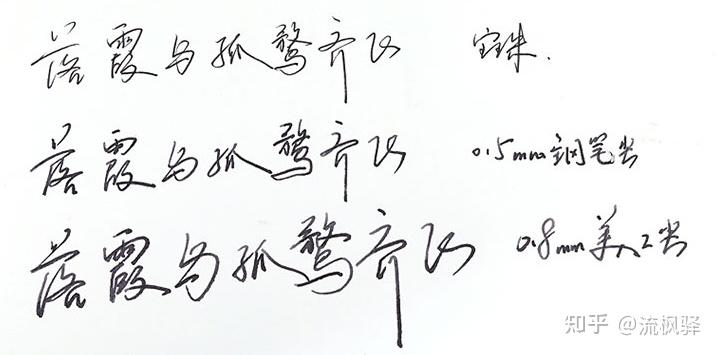 落霞与孤鹜齐飞 宝珠.
落霞与孤鹜齐飞 0.5mm钢笔尖
落霞与孤鹜齐飞 0.8mm美工尖
知乎 @流枫驿